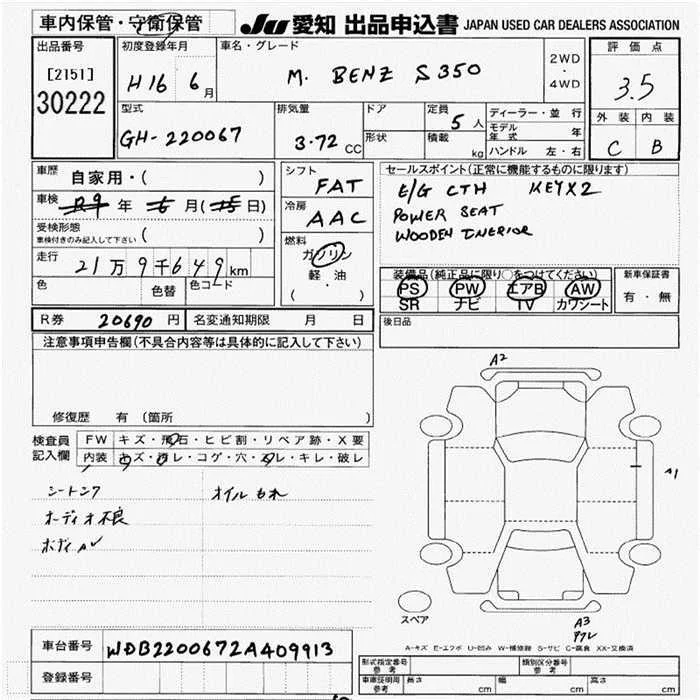 車内保管・守衛保管
JU 愛知 出品申込書 JAPAN USED CAR DEALERS ASSOCIATION
出品番号 初度登録年月 車名・グレード 2WD・4WD 評価点
[2151] H16 6月 M. BENZ S350 3.5
30222
型式 排気量 ドア 定員 5人 ディーラー・並行 外装 内装
GH-220067 3.72 CC 形状 積載 kg モデル年式 年 C B
ハンドル 左・右
車歴 自家用・( ) シフト FAT セールスポイント(正常に機能するものに限ります)
車検 R9年 6月(15日) 冷房 AAC E/G CTH KEYX2
POWER SEAT
受検形態 車検付きのみ記入して下さい ( ) 燃料 WOODEN INERIOR
走行 21万9千649km ガソリン
軽油
(・)
色 色替 色コード
装備品(純正品に限り○をつけてください) 新車保証書
PS PW エアB AW 有・無
SR ナビ TV カワシート
R券 20690円 名変通知期限 月 日 後日品
注意事項申告欄(不具合内容等は具体的に記入して下さい)
修復歴 有 (箇所 )
検査員記入欄 FW キズ・飛石・ヒビ割・リペア跡・X要
内装 キズ・コゲ・穴・キレ・破レ
シートシワ オイルもれ
オーディオ不良
ボディ
A2
A1
A3
スペア
A-キズ E-エクボ U-凹み W-補修跡 S-サビ C-腐食 XX-交換済
車台番号 WDB2200672A409913
登録番号
型式指定番号 参考 類別区分番号 参考
車庫証明用 参考 長さ cm 幅 cm 高さ cm